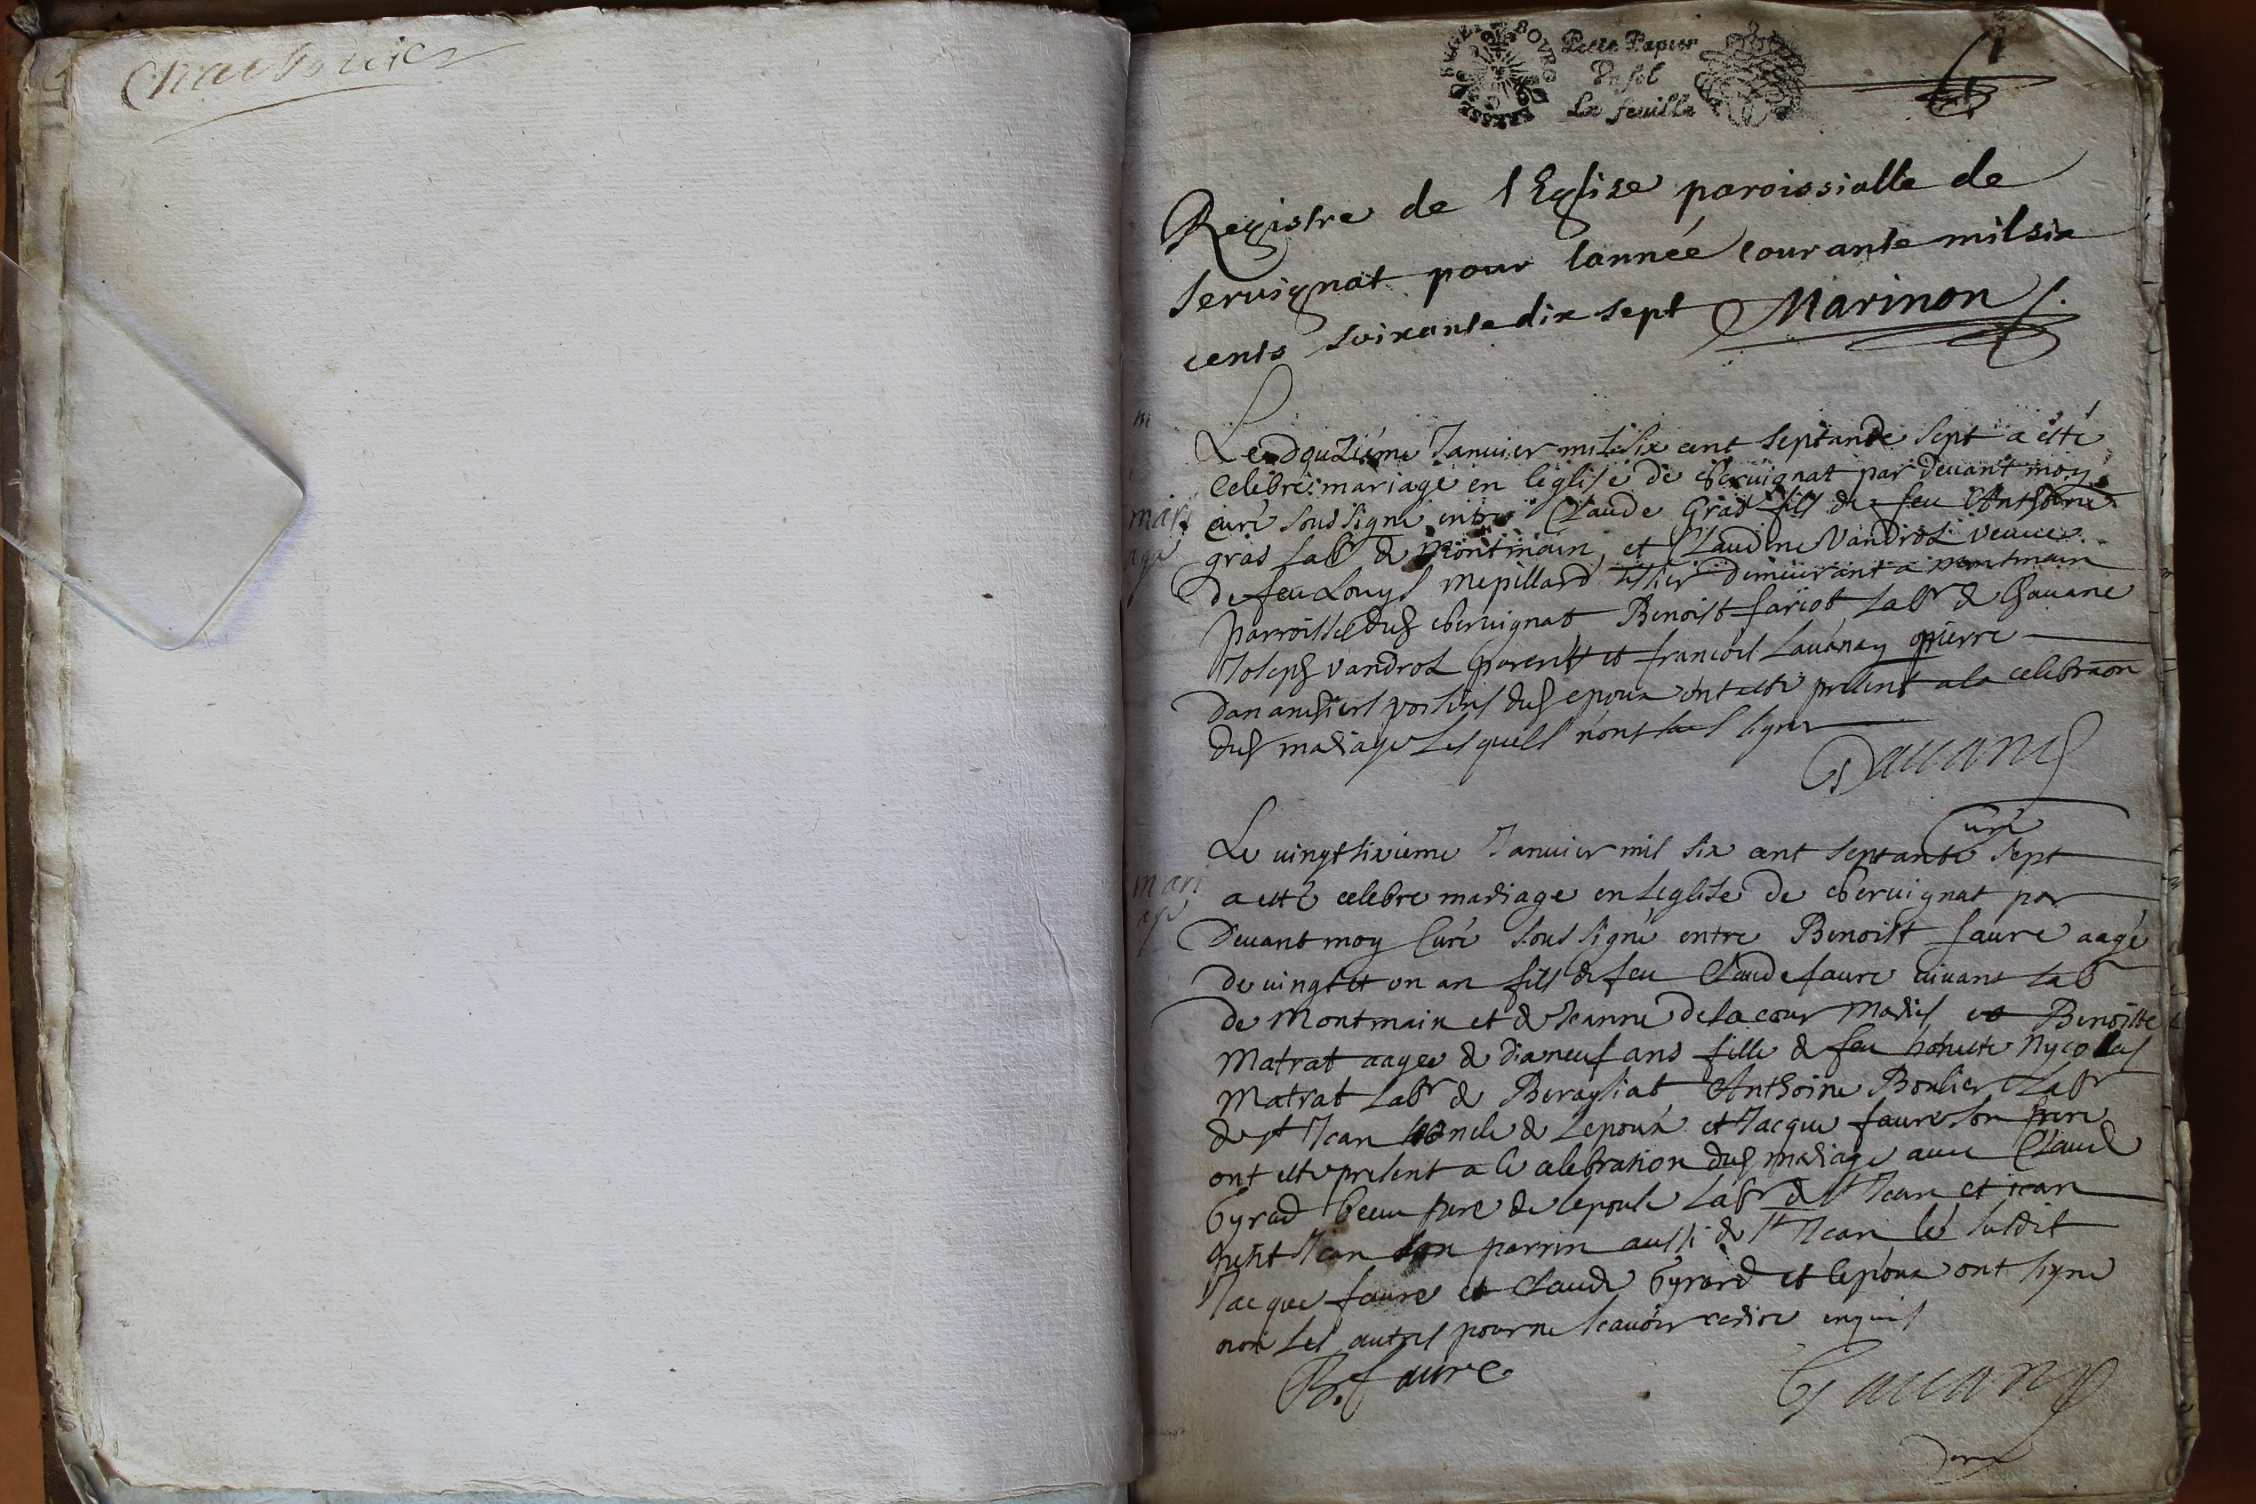 Petit Papier
Un sol
La feuille
BRESSE BUGEY BOURG
Registre de l'Eglise paroissialle de
Servignat pour lannée courante mil six
cents soixante dix sept Marinon
Le douziéme Januier mil six cent septande sept a esté
Celebré mariage en léglise de Cheruignat par deuant moy
mari
age
curé soussigné entre Claude Gras fils de feu Anthoine
gras labr de Montmain, et Claudine Vandrol veuue
de feu Louys Mepillard tissier demeurant a montmain
parroisse dud cheruignat Benoist fariot labr de Chauane
Joseph vandrol parent et francois Lauanay pierre
voisins dud epoux ont esté présent a la celebraon
dud mariage Lesquels n'ont sceus signer
curé
Le uingt sixieme Januier mil six cent septante sept
mari
age
a esté celebre mariage en Leglise de cheruignat par
deuant moy Curé sous signé entre Benoist faure aagé
de uingt et un an fils de feu Claude faure uiuant labr
de Montmain et de Jeanne de la cour Mariés et Benoiste
Matrat aagee de dix neuf ans fille de feu honeste Nycolas
Matrat labr de Beragliat Anthoine Boulier labr
de st Jean oncle de Lepoux et Jacque faure son frere
ont esté present a la celebration dud mariage auec Claude
Gyrad beau pere de lepouse labr de st Jean et jean
petit Jean son parrin aussi de st Jean les susdit
Jacque faure et Claude Gyrard et lepoux ont signé
non les autres pour ne scauoir enquis
B. faure